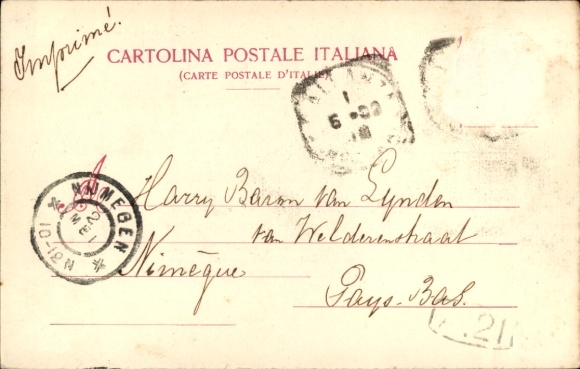 Imprimé.
CARTOLINA POSTALE ITALIANA
(CARTE POSTALE D'ITALIE)
A
NIJMEGEN
10-12 N
Harry Baron van Lynden
van Welderenstraat
Nimègue
Pays-Bas.